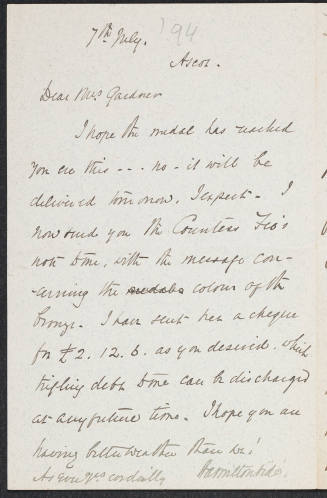 7th July. '94
Ascot.
Dear Mrs Gardner
I hope the medal has reached
you ere this --- no - it will be
delivered tomorrow, I expect - I
now send you the Countess Feo's
note to me, with the message con-
-cerning the medals colour of the
bronze. I have sent her a cheque
for £2. 12. 6. as you desired. which
trifling debt to me can be discharged
at any future time. I hope you are
having better weather than we!
As ever yrs cordially Hamilton Aïdé.